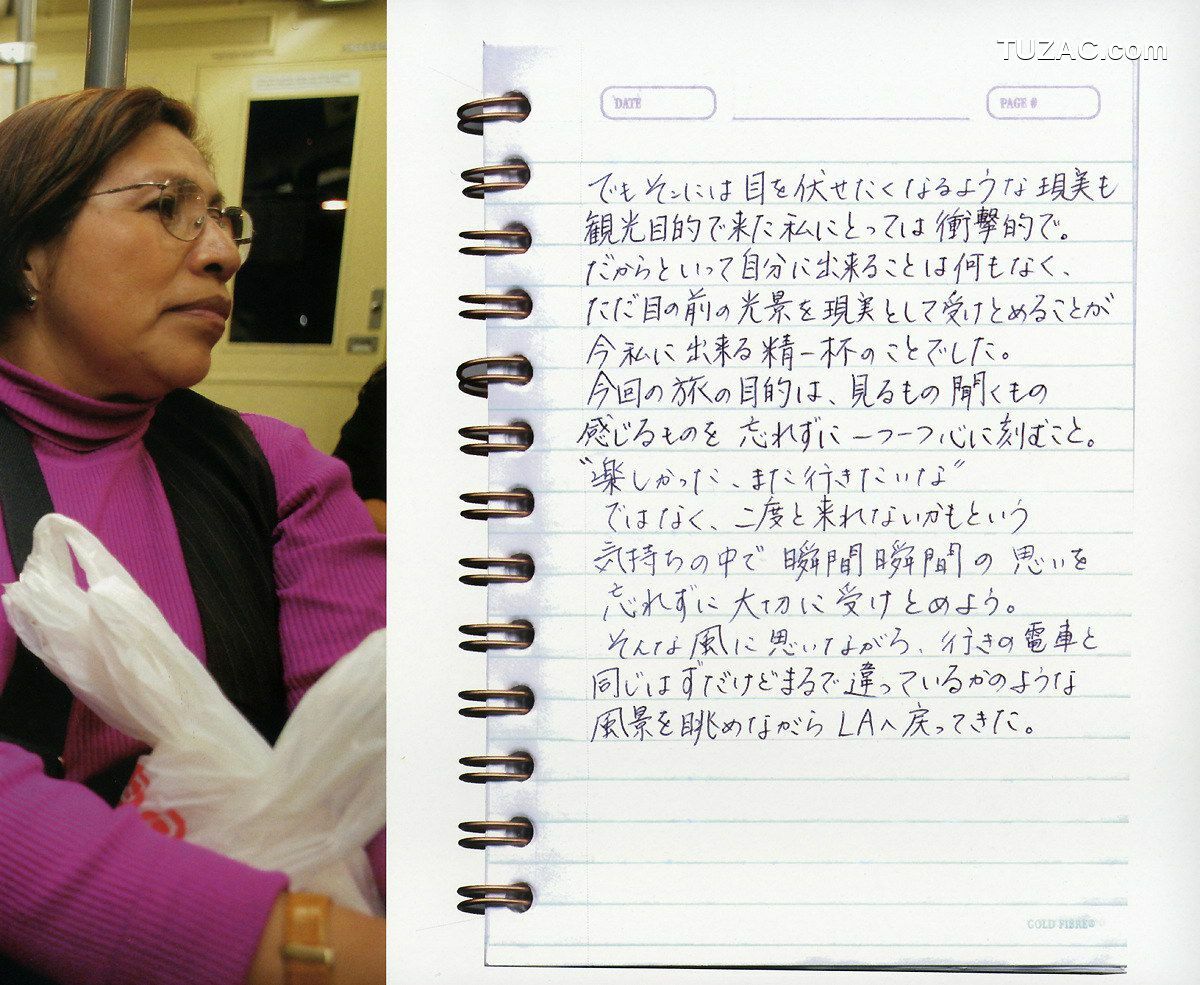 TUZAC.com
DATE
PAGE #
でもそこには目を伏せたくなるような現実も
観光目的で来た私にとっては衝撃的で。
だからといって自分に出来ることは何もなく、
ただ目の前の光景を現実として受けとめることが
今私に出来る精一杯のことでした。
今回の旅の目的は、見るもの聞くもの
感じるものを忘れずに一つ一つ心に刻むこと。
"楽しかった、また行きたいな"
ではなく、二度と来れないかもという
気持ちの中で瞬間瞬間の思いを
忘れずに大切に受けとめよう。
そんな風に思いながら、行きの電車と
同じはずだけどまるで違っているかのような
風景を眺めながらLAへ戻ってきた。
GOLD FIBRE®